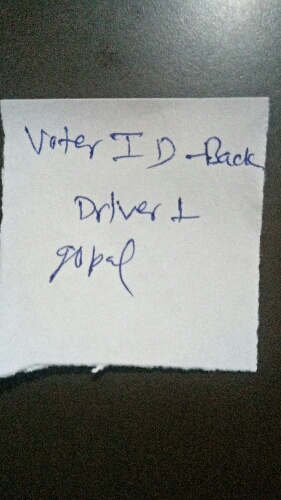 Voter ID -Back
Driver 1
gopal